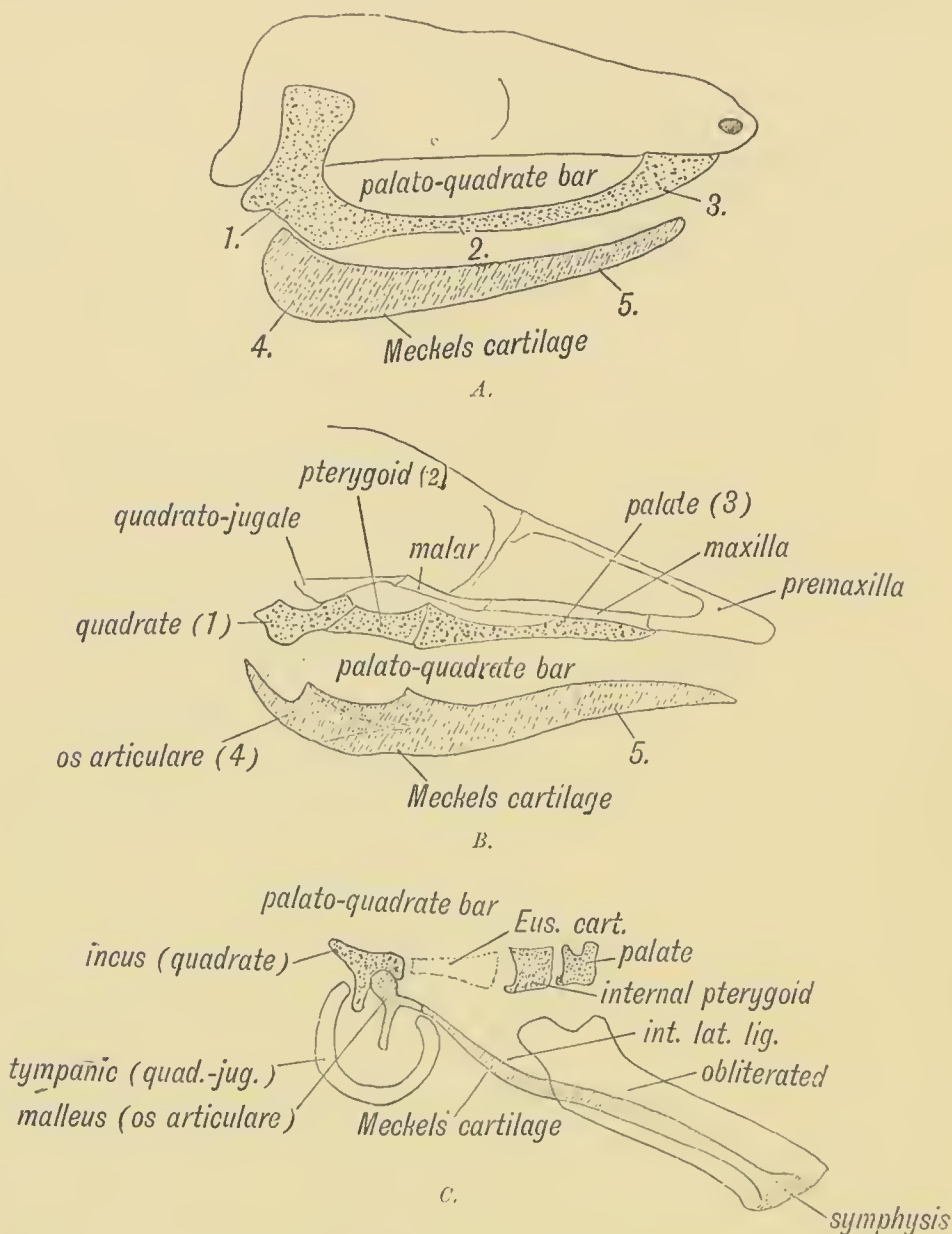 palato-quadrate bar
1.
2.
3.
4.
5.
Meckels cartilage
A.
pterygoid (2)
quadrato-jugale
malar
palate (3)
maxilla
premaxilla
quadrate (1)
palato-quadrate bar
os articulare (4)
5.
Meckels cartilage
B.
palato-quadrate bar
Eus. cart.
incus (quadrate)
palate
internal pterygoid
int. lat. lig.
obliterated
tympanic (quad.-jug.)
malleus (os articulare)
Meckels cartilage
C.
symphysis